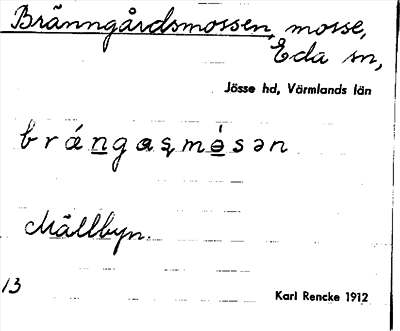 Bränngårdsmossen, mosse,
Eda sn,
Jösse hd, Värmlands län
brǽngaʂmósən
Mällbyn.
13
Karl Rencke 1912